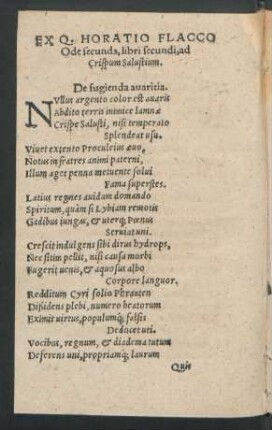 EX Q. HORATIO FLACCO
Ode secunda, libri secundi, ad
Crispum Salustium.
De fugienda avaritia.
NVllus argento color est avaris
Abdito terris inimice lamnæ
Crispe Salusti, nisi temperato
Splendeat usu.
Viuet extento Proculeius æuo,
Notus in fratres animi paterni,
Illum aget penna metuente solui
Fama superstes.
Latius regnes auidum domando
Spiritum, quàm si Lybiam remotis
Gadibus iungas, & uterq; Pœnus
Seruiat uni.
Crescit indulgens sibi dirus hydrops,
Nec sitim pellit, nisi causa morbi
Fugerit uenis, & aquosus albo
Corpore languor.
Redditum Cyri solio Phraaten
Dissidens plebi, numero beatorum
Eximit uirtus, populumq; falsis
Dedocet uti.
Vocibus, regnum, & diadema tutum
Deferens uni, propriamq; laurum
Quis